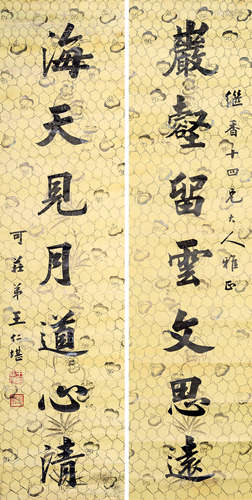 巖壑留雲文思遠
继香十四兄大人雅正
海天見月道心清
可莊弟王仁堪